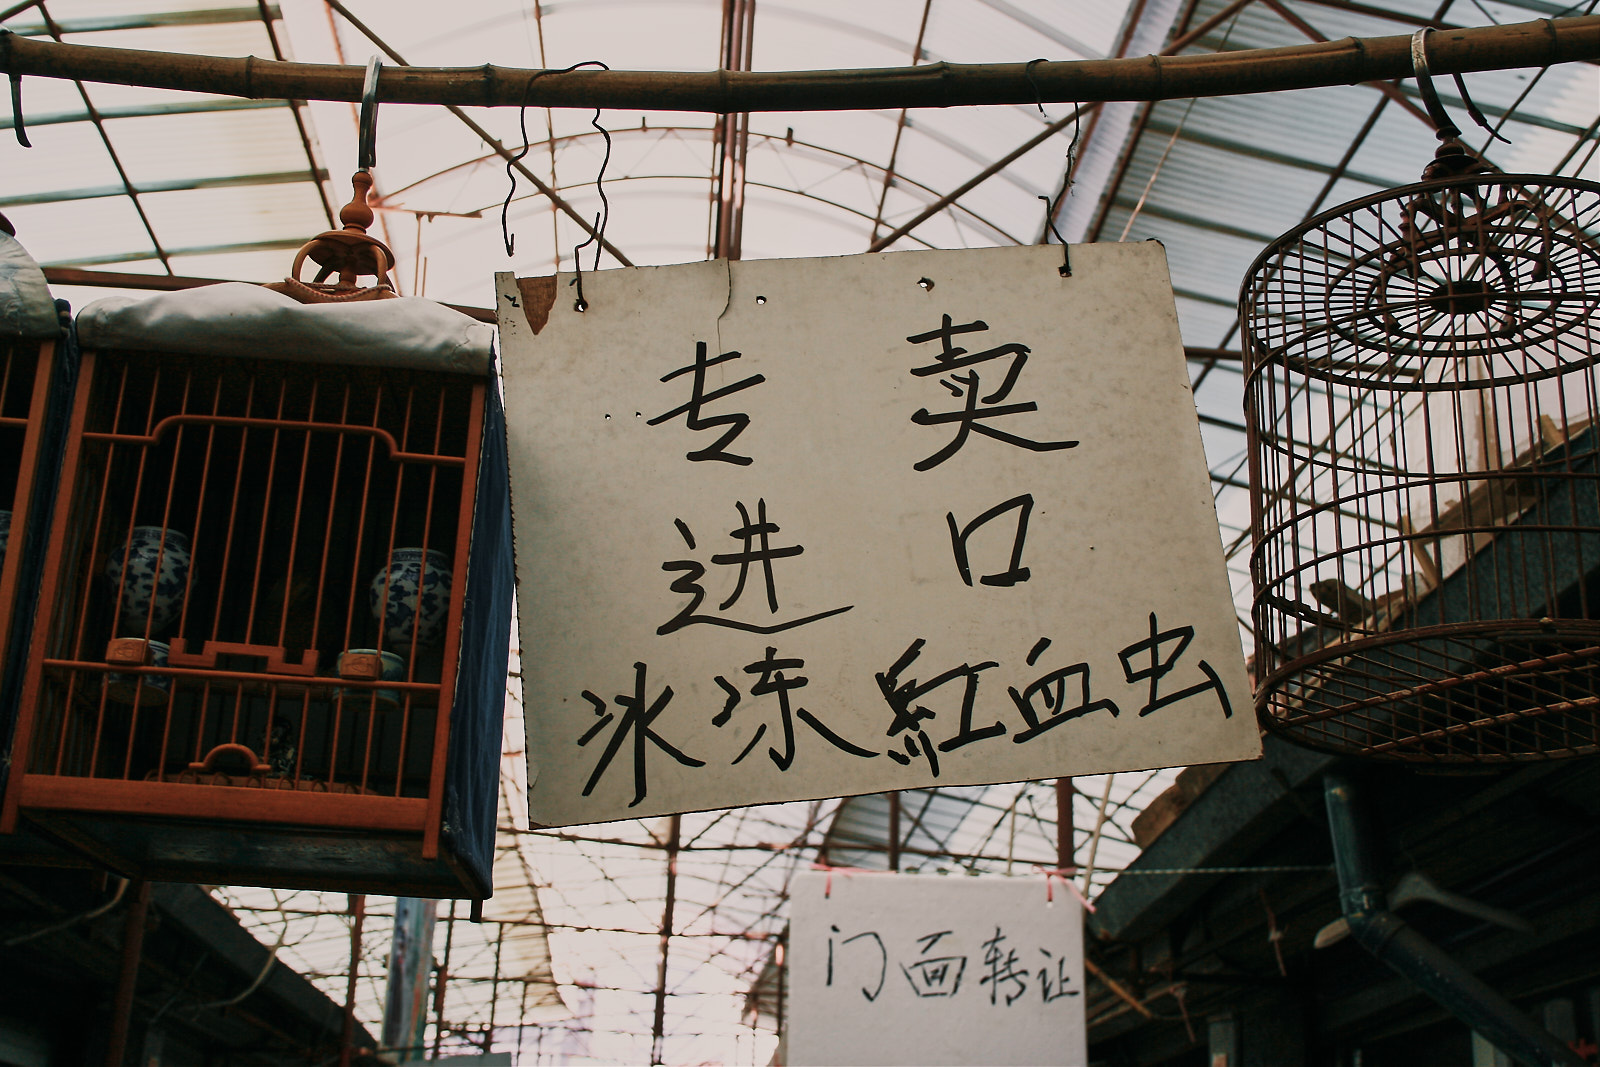 专卖
进口
冰冻紅血虫
门面转让